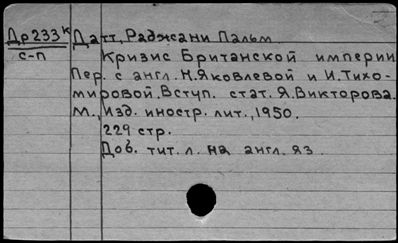 Др233к Датт, Раджани Пальм.
с-п Кризис Британской империи
Пер. с англ. Н.Яковлевой и И.Тихо-
мировой. Вступ. стат. Я.Викторова.
М., Изд. иностр. лит., 1950.
229 стр.
Доб. тит. л. на англ. яз.